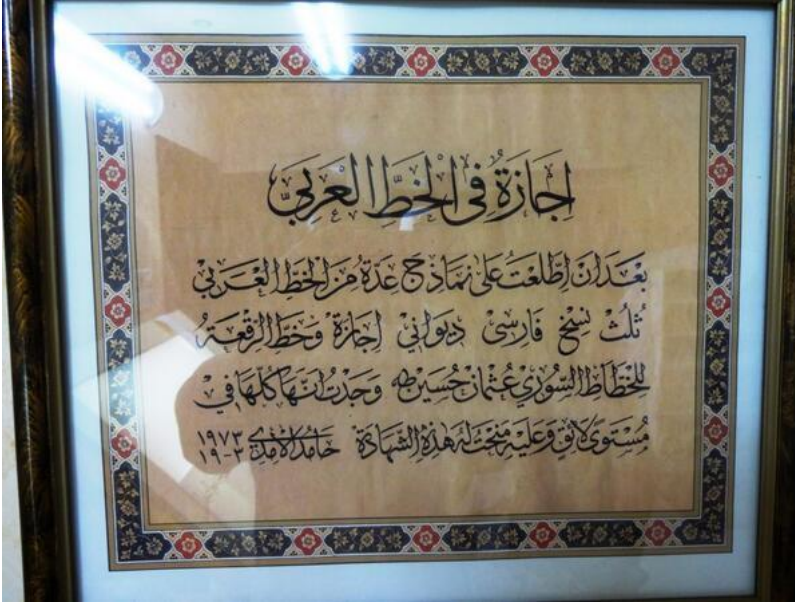 اِجَازَةٌ فِي الْخَطِّ الْعَرَبِيِّ
بَعْدَ اَنْ اِطَّلَعْتُ عَلٰى نَمَاذِجَ عِدَةٍ مِنَ الْخَطِّ الْعَرَبِيِّ
ثُلُثْ نَسِخْ فَارِسِى دِيوَانِي اِجَازَةْ وَخَطِّ الرُّقْعَةِ
لِلْخَطَّاطِ السُّورِي عُثْمَانْ حُسَيْنْ طه وَجَدْتُ اَنَّهَا كُلَّهَا فِي
مُسْتَوَى لَائِقٍ وَعَلَيْهِ مَنَحْتُ لَهُ هٰذِهِ الشَّهَادَةَ حَامِدُ الْاٰمِدِى ١٩٧٣
١٩-٣